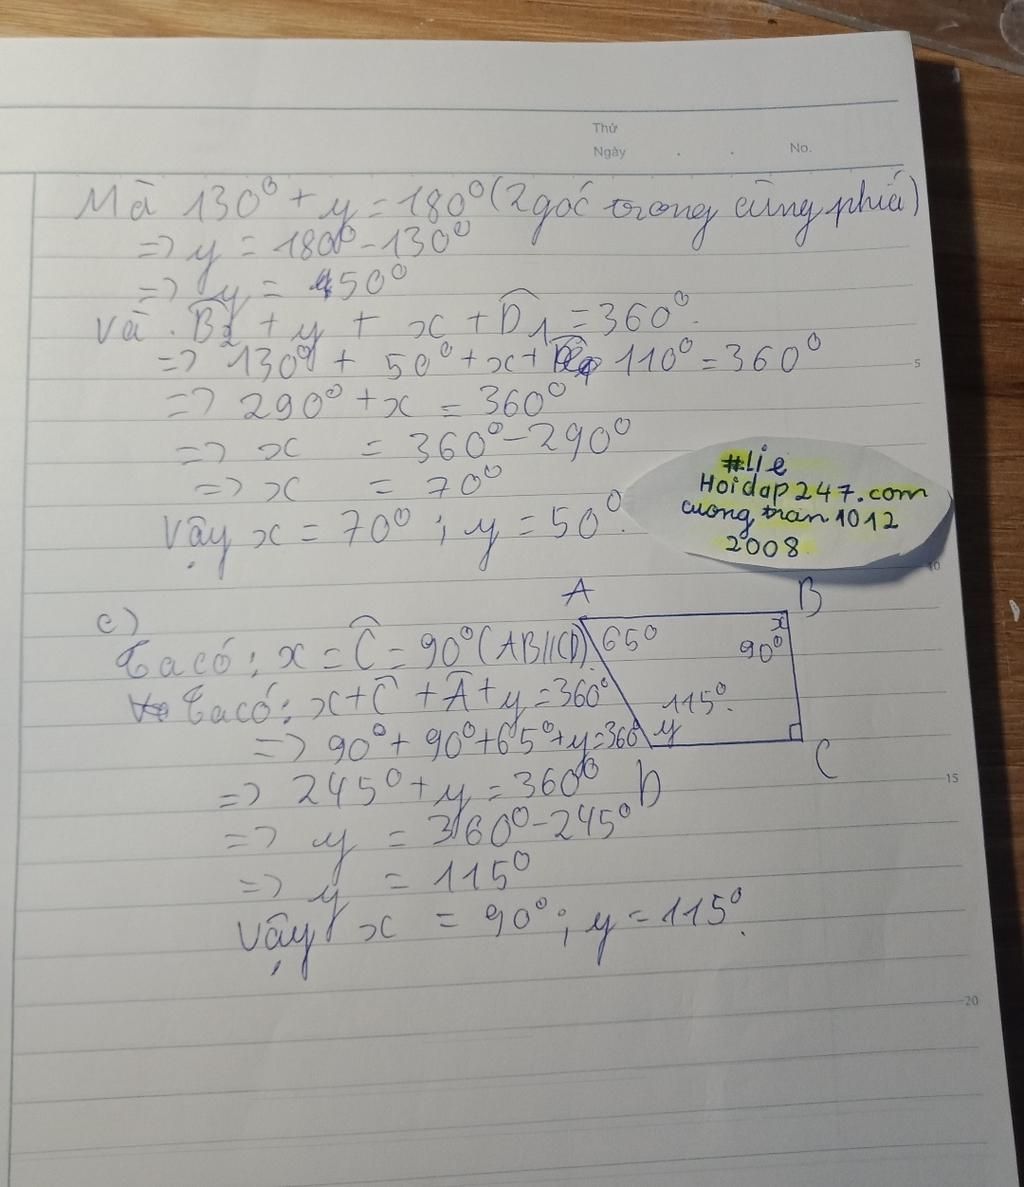 Thứ
Ngày . . No.
Mà 130⁰ + y = 180⁰ (2 góc trong cùng phía)
=> y = 180⁰ - 130⁰
=> y = 50⁰
và . B̂₂ + y + x + D̂₁ = 360⁰.
=> 130⁰ + 50⁰ + x + 110⁰ = 360⁰
5
=> 290⁰ + x = 360⁰
=> x = 360⁰ - 290⁰
=> x = 70⁰
Vậy x = 70⁰ ; y = 50⁰.
#Lie
Hoidap247.com
cuong tran 1012
2008
10
c)
A
B
Ta có : x = Ĉ = 90⁰ (AB//CD)
65⁰
x
90⁰
Ta có : x + Ĉ + Â + y = 360⁰
115⁰.
=> 90⁰ + 90⁰ + 65⁰ + y = 360⁰
y
D
C
=> 245⁰ + y = 360⁰
15
=> y = 360⁰ - 245⁰
=> y = 115⁰
Vậy x = 90⁰ ; y = 115⁰.
20